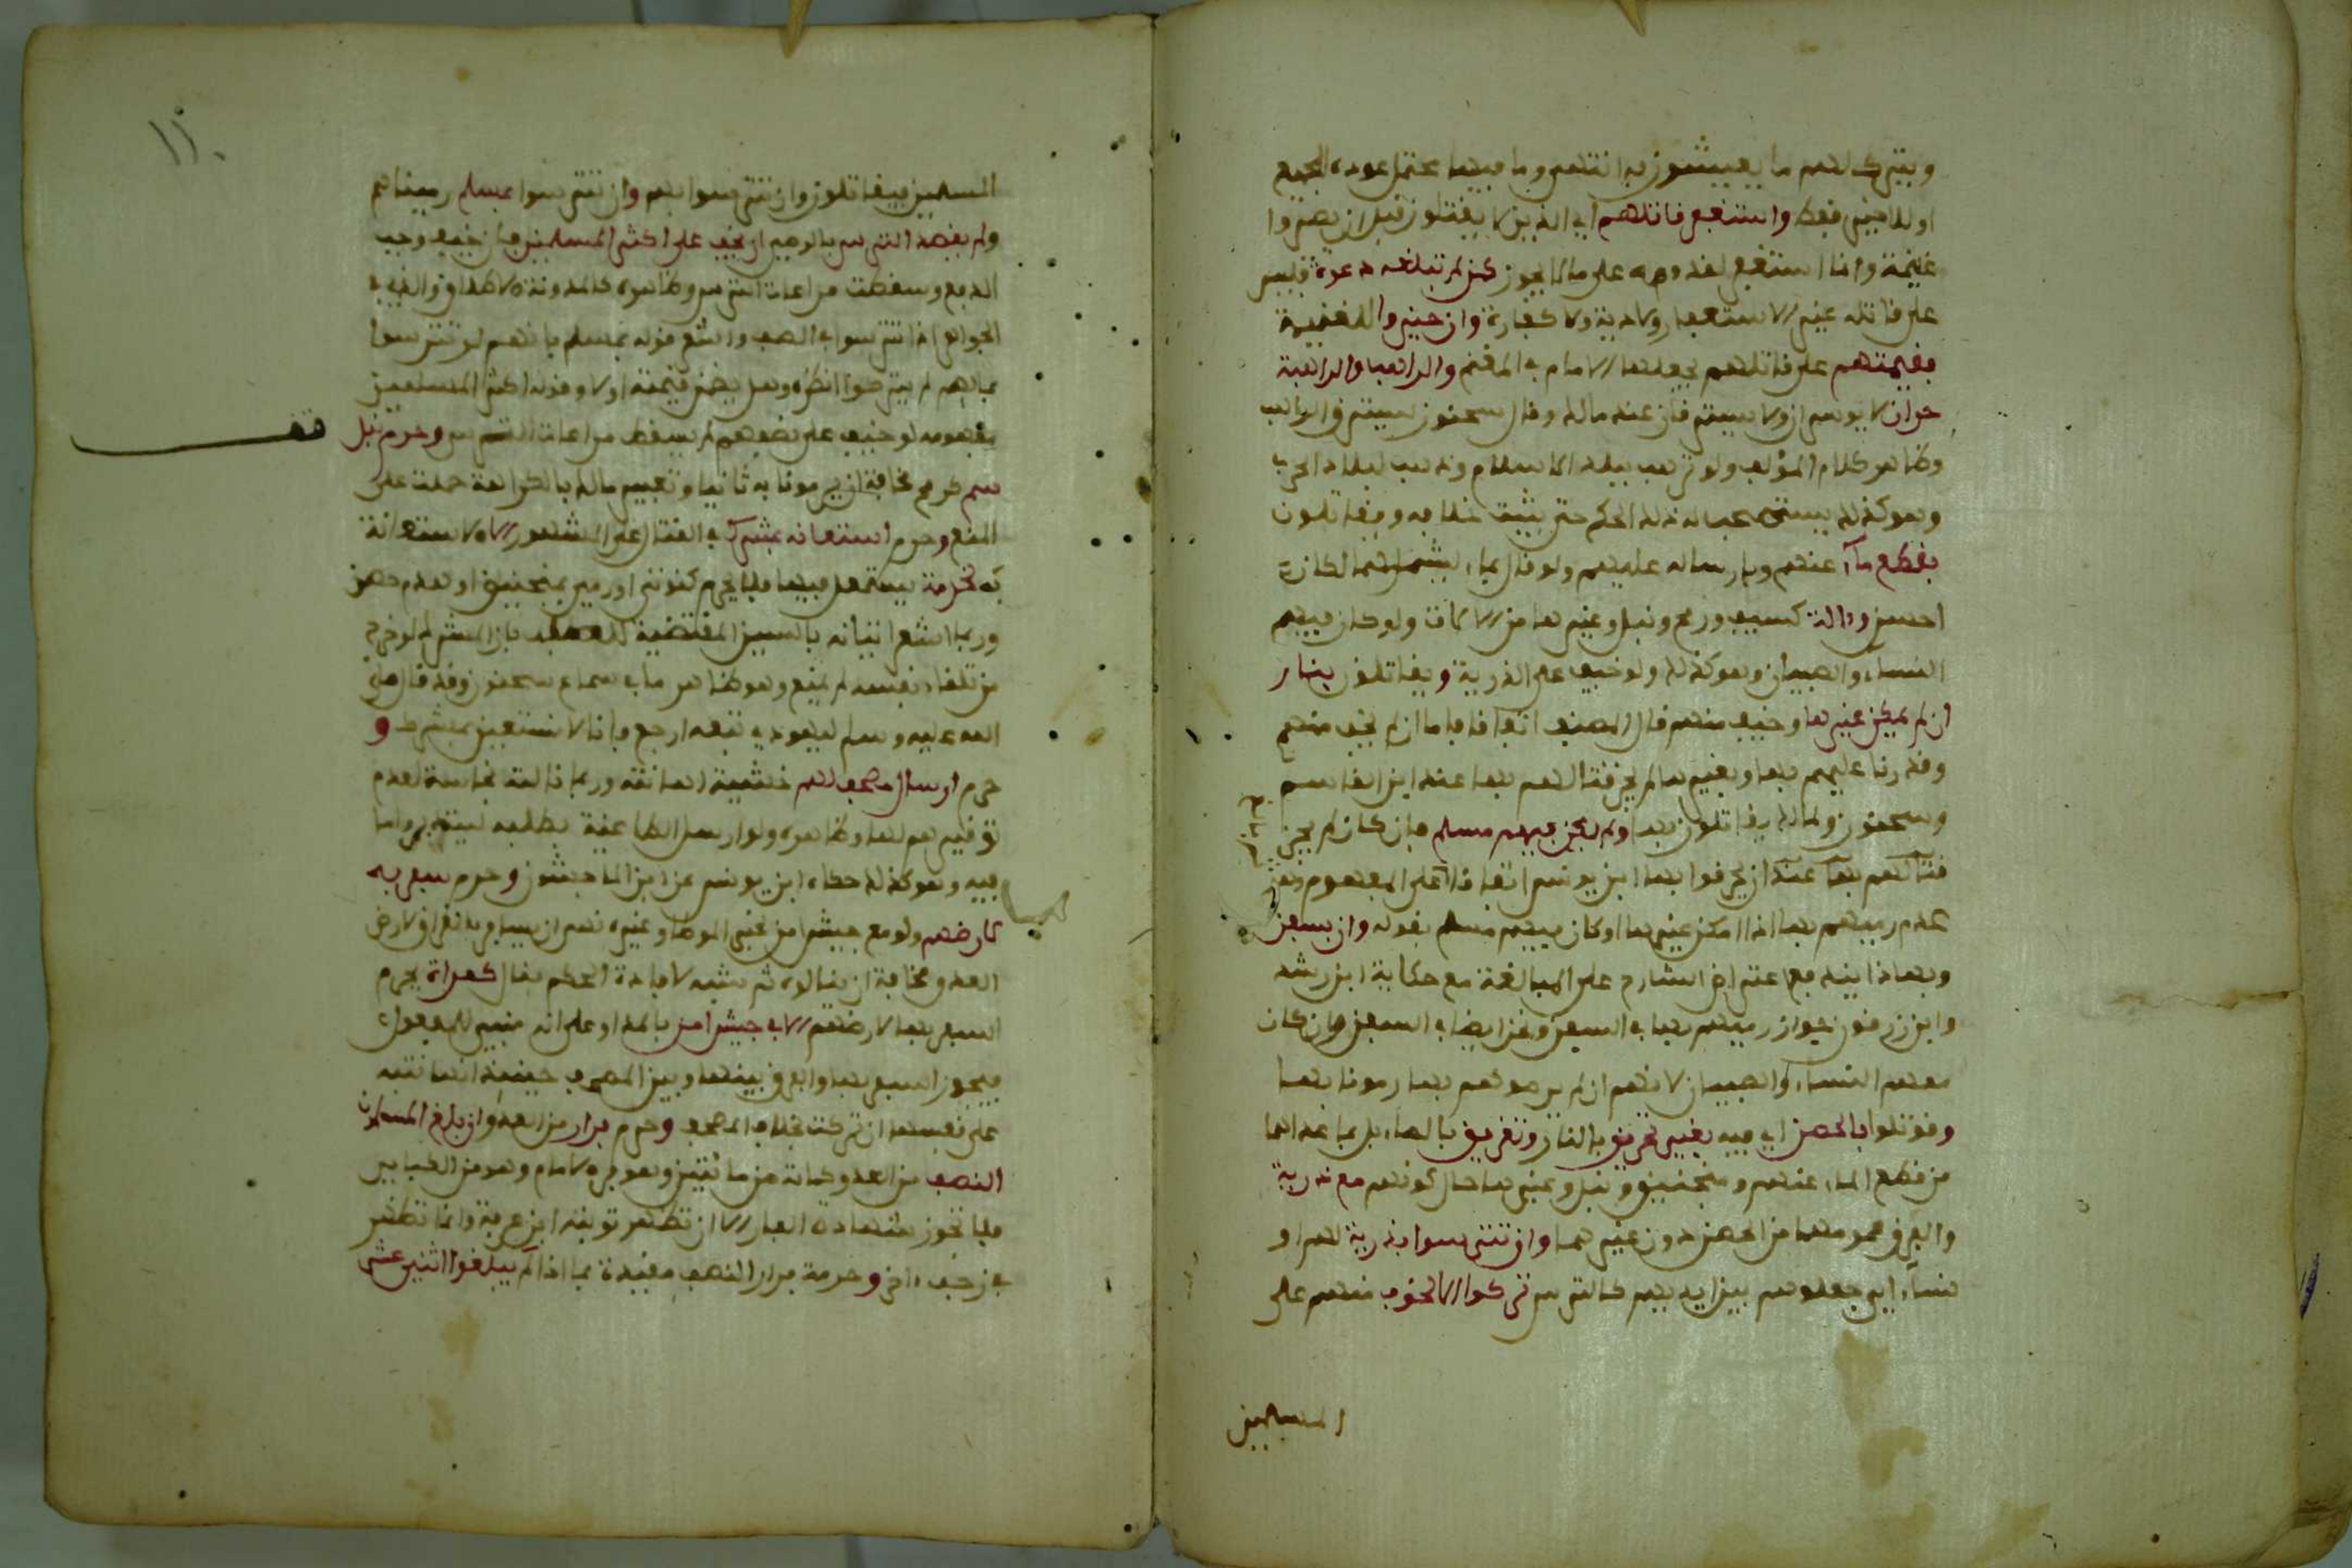 ويترك لهم ما يعيشون به انتهى وما فيها محتمل عوده للجميع
او للاخير فقط واستغفر قاتلهم اي الذين لا يقتلون قبل ان يصيروا
غنيمة وانما استغفر لقدومه على ما لا يجوز كمن لم تبلغه دعوة فليس
على قاتله غير الاستغفار ولا دية ولا كفارة وان حيزوا للغنيمة
فقيمتهم على قاتلهم يجعلها الامام في المغنم والراهب والراهبة
حران لا يوسران ولا يسترقان عند مالك وقال سحنون يسترق الراهب
وظاهر كلام المؤلف ولو ترهب ببلد الاسلام وذهب لبلاد الحرب
وهو كذلك يستصحب له ذلك الحكم حتى يثبت خلافه ويقاتلون
بقطع ماء عنهم وبارساله عليهم ولو قال بماء ليشملهما لكان
احسن وءالة كسيف ورمح ونبل وغيرها من الالات ولو كان فيهم
النساء والصبيان وهو كذلك ولو خيف على الذرية ويقاتلون بنار
ان لم يمكن غيرها وخيف منهم قال المصنف اتفاقا فاما ان لم يخف منهم
وقدرنا عليهم بها وبغيرها لم يجز قتالهم بها عند ابن القاسم
وسحنون ولمالك يقاتلون بها ولم يكن فيهم مسلم فان كان لم يجز
قتالهم بها عند ان يحرقوا بها ابن يونس اتفاقا على المفهوم
عدم رميهم بها اذا امكن غيرها او كان فيهم مسلم بقوله وان بسفن
وبهذا يندفع اعتراض الشارح على المبالغة مع حكاية ابن رشد
وابن زرقون جواز رميهم بها في السفن وعن ايضا في السفن وان كان
معهم النساء والصبيان لانهم ان لم يرموهم بها رمونا بها
وقوتلوا بالحصن اي فيه بغير تحريق بالنار وتغريق بالماء بل بما عداهما
من قطع الماء عنهم ومنجنيق ونبل وغيرها حال كونهم مع ذرية
والفرق عمومها من الحصن دون غيرهما وان تترسوا بذرية لهم او
نساء اي جعلوهم بين ايديهم كالترس تركوا الا لخوف منهم على
المسلمين
١١٠
المسلمين فيقاتلون وان تترسوا بهم وان تترسوا بمسلم رميناهم
ولم يقصد الترس بالرمي ان لم يخف على اكثر المسلمين فان خيف وجب
الدفع وسقطت مراعات الترس وظاهره كالمدونة
الجواهر اذا تترسوا في الصف واشعر قوله بمسلم بانهم لو تترسوا
بمالهم لم يتركوا انظره وهل يضمن قيمته اولا وقوله اكثر المسلمين
مفهومه لو خيف على نصفهم لم يسقط مراعات الترس وحرم نبل
قف
سم كره مخافة ان يرمونا به ثانيا وتعبير مالك بالكراهة حملت على
المنع وحرم استعانة بمشرك في القتال على المشهور الا لاستعانة
به لخدمة يستعمل فيها فلا يحرم كنوتي او رمي بمنجنيق او لهدم حصن
وربما اشعر اتيانه بالسين المقتضية للطلب بان المشرك لو خرج
من تلقاء نفسه لم يمنع وهو ظاهر ما في سماع سحنون وقد قال صلى
الله عليه وسلم ليهودي تبعه ارجع فانا لا نستعين بمشرك و
حرم ارسال مصحف لهم خشية اهانته وربما نالته نجاسة لعدم
توقيرهم لها وظاهره ولو ارسل الطاغية بطلبه ليتدبروا ما
فيه وهو كذلك حكاه ابن يونس عن ابن الماجشون وحرم سفر به
لارضهم ولو مع جيش امن لخبر الموطا وغيره نهى ان يسافر بالقران لارض
العدو مخافة ان ينالوه ثم شبه لافادة الحكم فقال كمراة يحرم
السفر بها لارضهم الا في جيش امن بالمد او على انه مبني للمفعول
فيجوز السفر بها والفرق بينها وبين المصحف حينئذ انها تنبه
على نفسها ان تركت بخلاف المصحف وحرم فرار من العدو ان بلغ المسلمون
النصف من العدو كماية من مائتين وهو من الكباير
فلا تجوز شهادة الفار الا ان تظهر توبته ابن عرفة وانما تظهر
في زحف ءاخر وحرمة فرار النصف مقيدة بما اذا لم يبلغوا اثني عشر